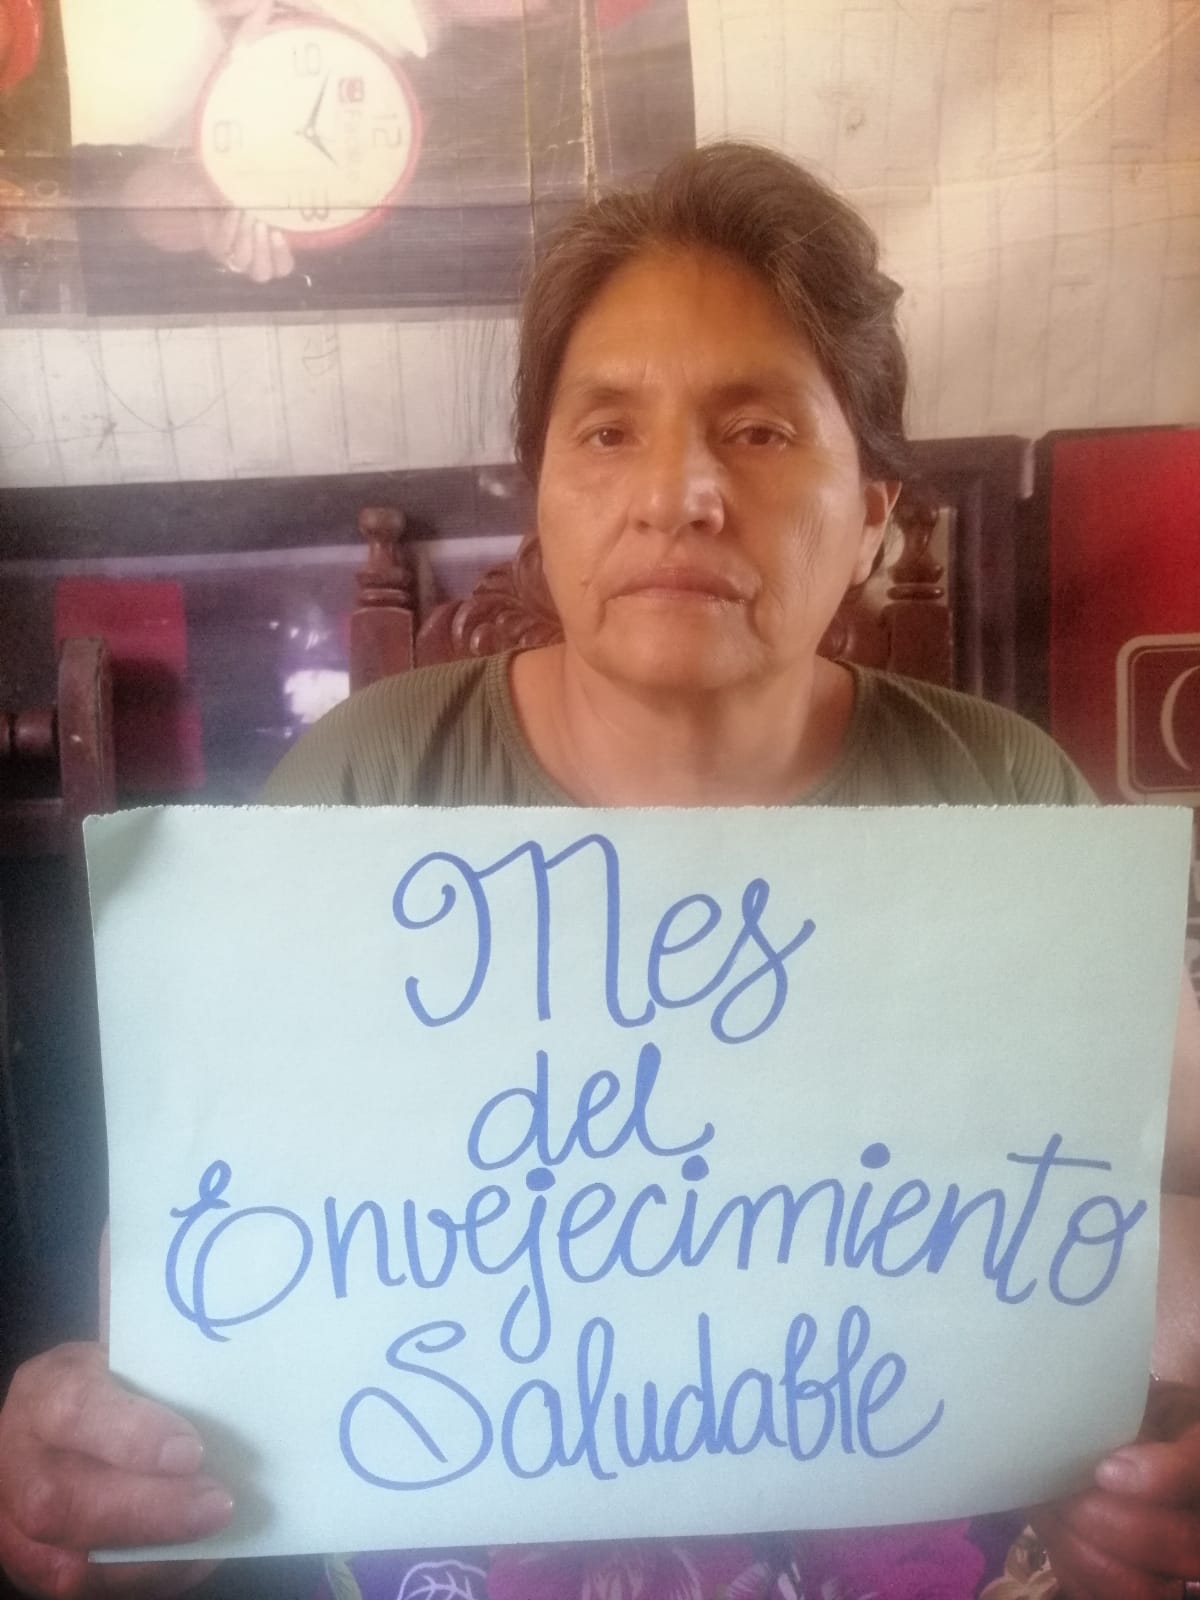 9
12
6
3
Mes
del
Envejecimiento
Saludable